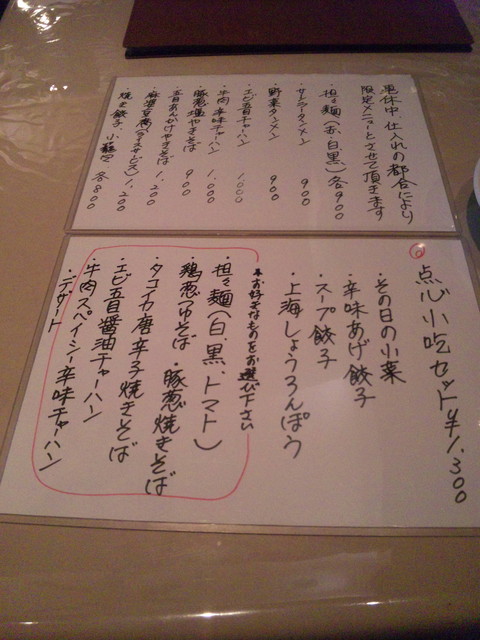 夏休中、仕入れの都合により
限定メニューとさせて頂きます
・サーシータンメン 900
・担々麺(赤・白・黒)各900
・野菜タンメン 900
・エビ五目チャーハン 1,000
・牛肉辛味チャーハン 1,000
・豚葱塩やきそば 900
・五目あんかけやきそば 1,200
・麻婆豆腐(ライスサービス)1,200
・焼き餃子、小籠包 各800
点心小吃セット ¥1,300
・その日の小菜
・辛味あげ餃子
・スープ餃子
・上海しょうろんぽう
お好きなものをお選び下さい
・担々麺(白、黒、トマト)
・鶏葱つゆそば・豚葱焼きそば
・タコイカ唐辛子焼きそば
・エビ五目醤油チャーハン
・牛肉スペイシー辛味チャーハン
・デザート